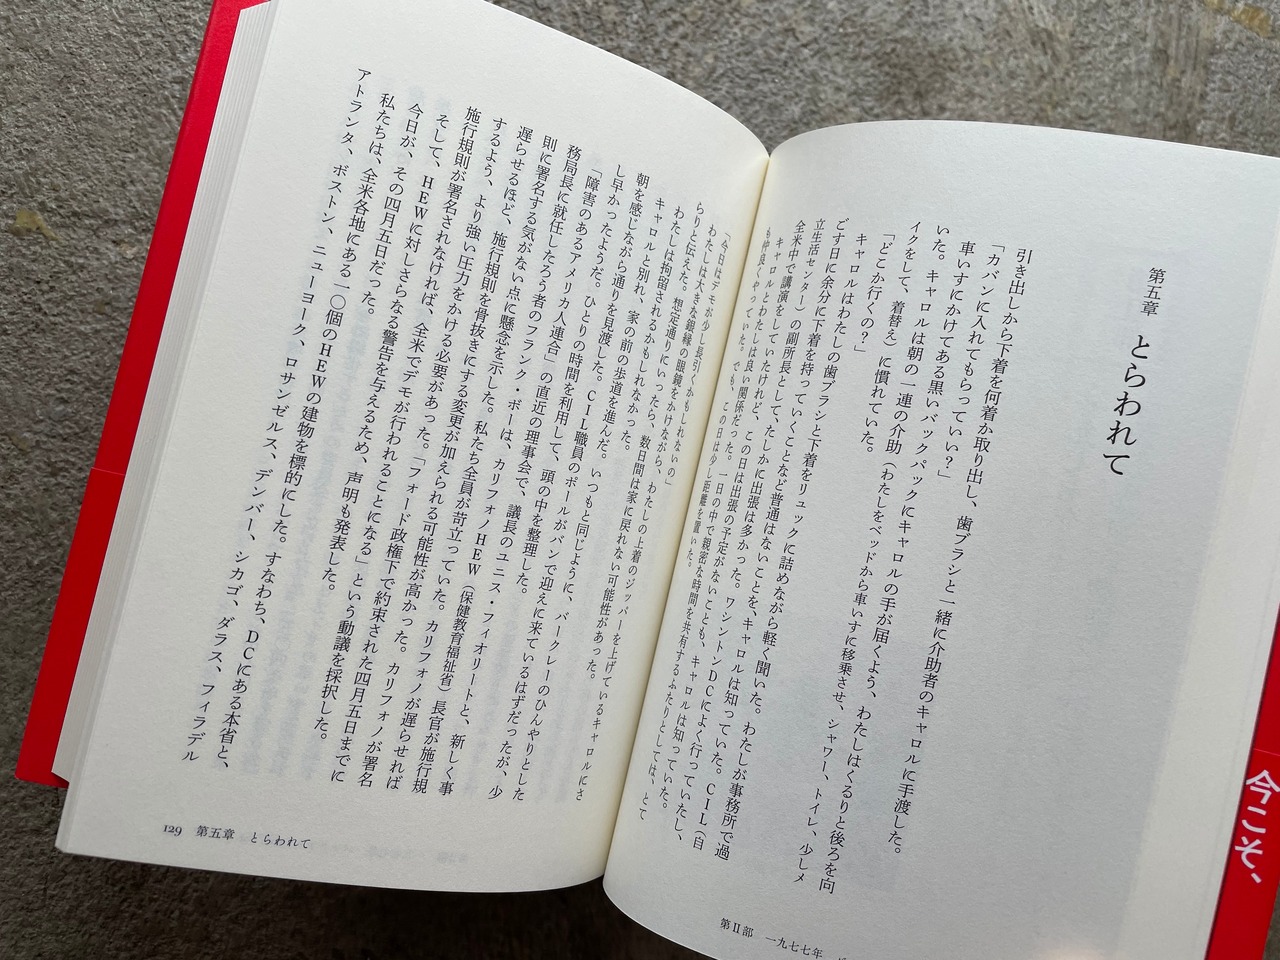 第五章 とらわれて
引き出しから下着を何着か取り出し、歯ブラシと一緒に介助者のキャロルに手渡した。
「カバンに入れてもらっていい？」
車いすにかけてある黒いバックパックにキャロルの手が届くよう、わたしはくるりと後ろを向
いた。キャロルは朝の一連の介助（わたしをベッドから車いすに移乗させ、シャワー、トイレ、少しメ
イクをして、着替え）に慣れていた。
「どこか行くの？」
キャロルはわたしの歯ブラシと下着をリュックに詰めながら軽く聞いた。わたしが事務所で過
ごす日に余分に下着を持っていくことなど普通はないことを、キャロルは知っていた。CIL（自
立生活センター）の副所長として、たしかに出張は多かった。ワシントンDCによく行っていたし、
全米中で講演をしていたけれど、この日は出張の予定がないことも、キャロルは知っていた。
キャロルとわたしは良い関係だった。一日の中で親密な時間を共有するふたりとしては、とて
も仲良くやっていた。でも、この日は少し距離を置いた。
「今日はデモが少し長引くかもしれないの」
わたしは大きな銀縁の眼鏡をかけながら、わたしの上着のジッパーを上げているキャロルにさ
らりと伝えた。想定通りにいったら、数日間は家に戻れない可能性があった。
わたしは拘留されるかもしれなかった。
キャロルと別れ、家の前の歩道を進んだ。いつもと同じように、バークレーのひんやりとした
朝を感じながら通りを見渡した。CIL職員のポールがバンで迎えに来ているはずだったが、少
し早かったようだ。ひとりの時間を利用して、頭の中を整理した。
「障害のあるアメリカ人連合」の直近の理事会で、議長のユニス・フィオリートと、新しく事
務局長に就任したろう者のフランク・ボーは、カリフォノHEW（保健教育福祉省）長官が施行規
則に署名する気がない点に懸念を示した。私たち全員が苛立っていた。カリフォノが遅らせれば
遅らせるほど、施行規則を骨抜きにする変更が加えられる可能性が高かった。カリフォノが署名
するよう、より強い圧力をかける必要があった。「フォード政権下で約束された四月五日までに
施行規則が署名されなければ、全米でデモが行われることになる」という動議を採択した。
そして、HEWに対しさらなる警告を与えるため、声明も発表した。
今日が、その四月五日だった。
私たちは、全米各地にある一〇個のHEWの建物を標的にした。すなわち、DCにある本省と、
アトランタ、ボストン、ニューヨーク、ロサンゼルス、デンバー、シカゴ、ダラス、フィラデル
129 第五章 とらわれて
第Ⅱ部 一九七七年
今こそ、